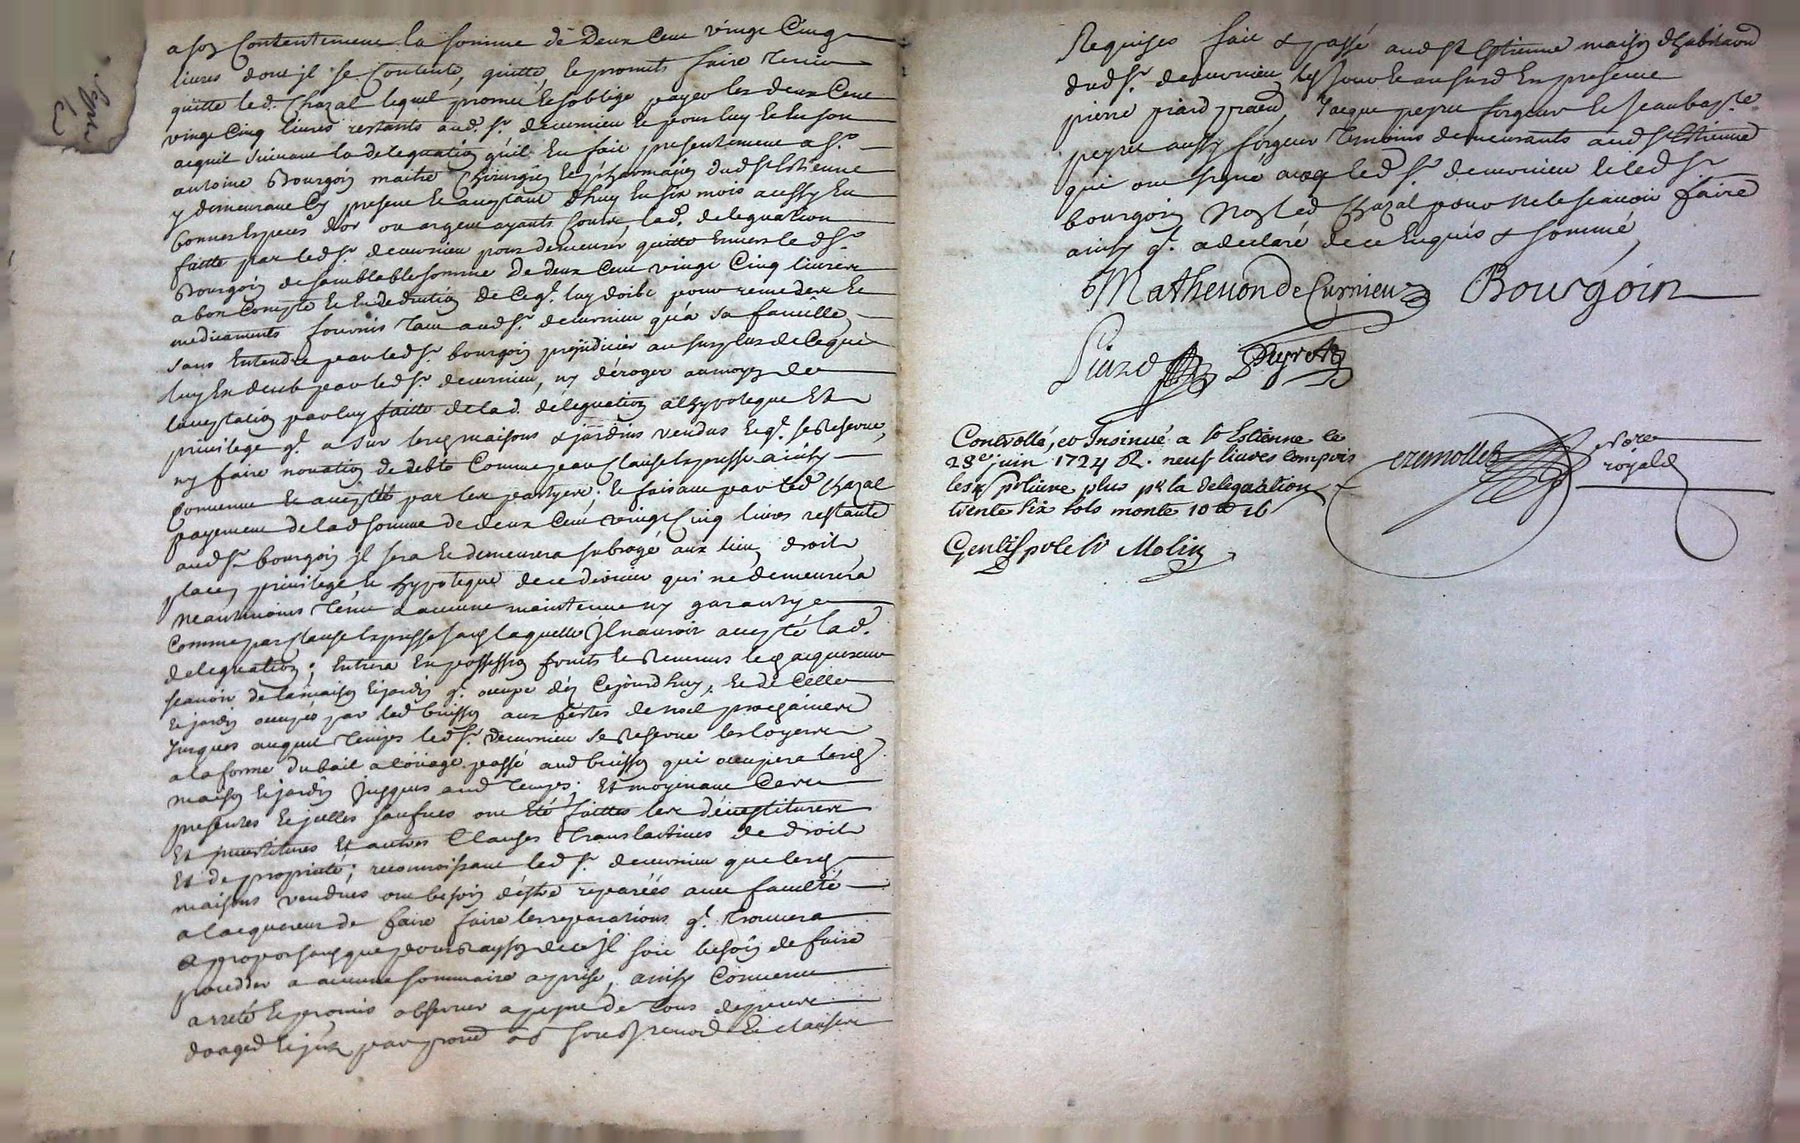 a son Contentement la somme de Deux Cent vingt Cinq
livres dont il se Contente, quitte, le promets faire tenir
quitte led. Chazal lequel promet et soblige payer les deux Cent
vingt Cinq livres restants aud. Sr. decurnieu et pour luy et en son
acquit suivant la delegation quil En fait presentement a Sr.
antoine Bourgoin maitre Chirurgien et pharmatien dud St Estienne
y demeurant Cy present et aceptant dhuy En six mois aussy En
bonnes Especes dor ou argent ayants Cours, lad. delegation
faitte par led Sr decurnieu pour demeurer quitte Envers led Sr.
Bourgoin de semblable somme de deux Cent vingt Cinq livres
a bon Compte et En deduction de Ce ql. luy doibt pour remedes et
medicaments fournis tant aud Sr. decurnieu qu'a sa famille,
sans Entendre par led Sr. bourgoin prejudicier au surplus de Ce qui
luy En deub par led Sr. decurnieu, ny déroger au moyen de
laceptation par luy faitte de lad. delegation a lhypoteque Et
privilege ql. a sur lesd maisons & jardins vendus Et ql. se Reserve,
ny faire novation de debte Comme par Clause Expresse ainsy
Convenue et aceptée par les partyes; Et faisant par led Chazal
payement de lad somme de deux Cent vingt Cinq livres restante
aud Sr. bourgoin il sera et demeurera subrogé aux lieu, droit,
place, privilege et hypoteque de ce dernier qui ne demeurera
neantmoins tenu a aucune maintenue ny garantye
Comme par Clause Expresse sans laquelle Il nauroit accepté lad.
delegation; Entrera En possession fruits et Revenus led acquereur
scavoir de la maison Et jardin ql. occupe dés Cejourdhuy, et de Celle
Et jardin occupés par led buisson aux festes de noel prochaines
Jusques auquel temps led Sr. decurnieu se Reserve les loyers
a la forme du bail a loüage passé aud buisson qui occupera lesd
maison Et jardin Jusques aud temps; Et moyenant Ces
presentes Et jcelles saufues ont eté faittes les dévestitures
Et jnvestitures Et autres Clauses translatives de droit
Et de proprieté; reconnoissant led Sr. decurnieu que lesd
maisons vendues ont besoin dèstre reparées avec faculté
a lacquereur de faire faire les reparations ql. trouvera
a propos sans que pour Rayson de ce Il soit besoin de faire
proceder a aucune sommaire aprise, ainsy Convenu
arreté Et promis observer a peyne de tous depens
Requises fait & passé aud St Estienne maison dhabitaon
dud Sr. decurnieu En presence
pierre piard Jacque peyre forgeur et Jean bapte
peyre aussy forgeur temoins demeurants aud St Estienne
qui ont signé avec led Sr. decurnieu et led Sr
bourgoin Non led Chazal pour ne le scavoir faire
ainsy ql. a declaré de ce Enquis & sommé,
Mathevon de Curnieu Bourgoin
Piard Peyre
Controllé, et Insinué a St Estienne le
28e juin 1724 R. neuf livres compris
plus pr la delegation
trente six sols monte 10 16
Molin
notre
royald